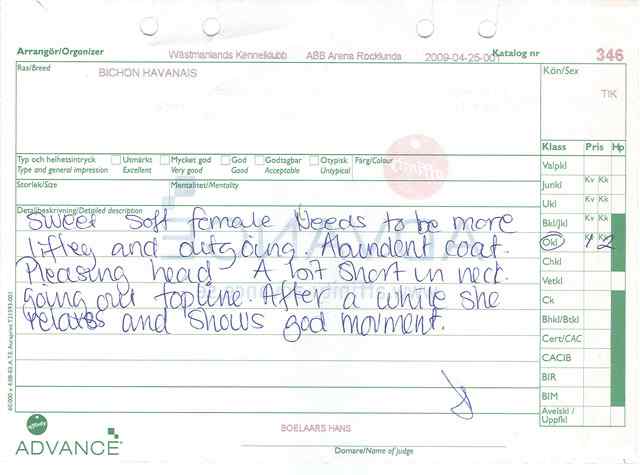 Arrangör/Organizer Västmanlands Kennelklubb ABB Arena Rocklunda 2009-04-25-001 Katalog nr 346
Ras/Breed BICHON HAVANAIS Kön/Sex
TIK
Klass Pris Hp
Typ och helhetsintryck Utmärkt Mycket god God Godtagbar Otypisk Färg/Colour
Type and general impression Excellent Very good Good Acceptable Untypical
Valpkl
Storlek/Size Mentalitet/Mentality
Junkl Kv Kk
Ukl Kv Kk
Detaljbeskrivning/Detailed description
Sweet soft female Needs to be more
lifteg and outgoing. Abundent coat.
Pleasing head A bit short in neck
going out topline. After a while she
relaxes and shows god movment.
Bkl/Jkl Kv Kk
Ökl Kv Kk 1 2
Chkl
Vetkl
Ck
Bhkl/Btkl
Cert/CAC
CACIB
BIR
BIM
Avelskl / Uppfkl
BOELAARS HANS
Domare/Name of judge
ADVANCE
affinity